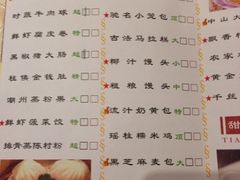 时蔬牛肉球 超
鲜虾腐皮卷 特
黑椒猪大肠 超
桂侯金钱肚 特
潮州蒸粉果 大
★鲜虾菠菜饺 特
排骨蒸陈村粉 超
驰名小笼包 顶
古法马拉糕 大
椰汁馒头 小
粗粮馒头 中
流汁奶黄包 特
瑶柱糯米鸡 顶
黑芝麻麦包 大
中山
飘香
★农家
★黄金
★千丝
甜
TIA